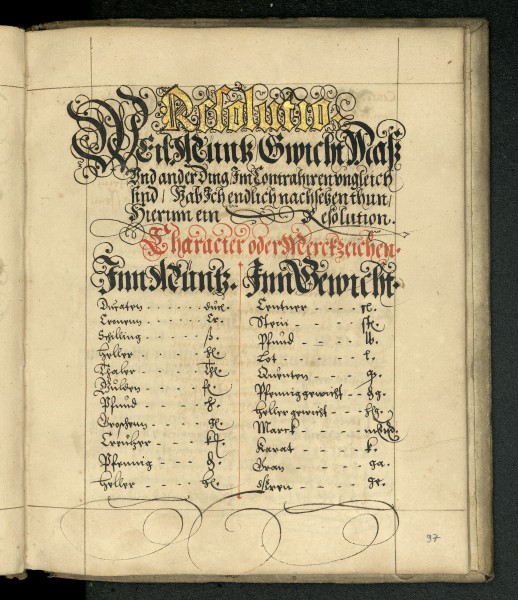 Resolutio.
WEil Müntz Gwicht Maß
Vnd ander Ding, Im Contrahiren vngleich
sind / Hab Ich endlich nachsetzen thun /
Hierum ein Resolution.
Character oder Merckzeichen.
Inn Müntz. Inn Gewicht.
Ducaten - - - - - duc. Centner - - - - - ct.
Cronenn - - - - - cr. Stein - - - - - st.
Schilling - - - - - ß. Pfund - - - - - lb.
Heller - - - - - hl. Lot - - - - - l.
Thaler - - - - - thl. Quenten - - - - - q.
Gülden - - - - - fl. Pfenniggewicht - - - ₰g.
Pfund - - - - - Heller gewicht - - - hlg.
Groschenn - - - - - gl. Marck - - - - -
Creützer - - - - - kr. Karat - - - - - k.
Pfennig - - - - - ₰. Gran - - - - - ga.
Heller - - - - - hl. - - - - - ge.
97